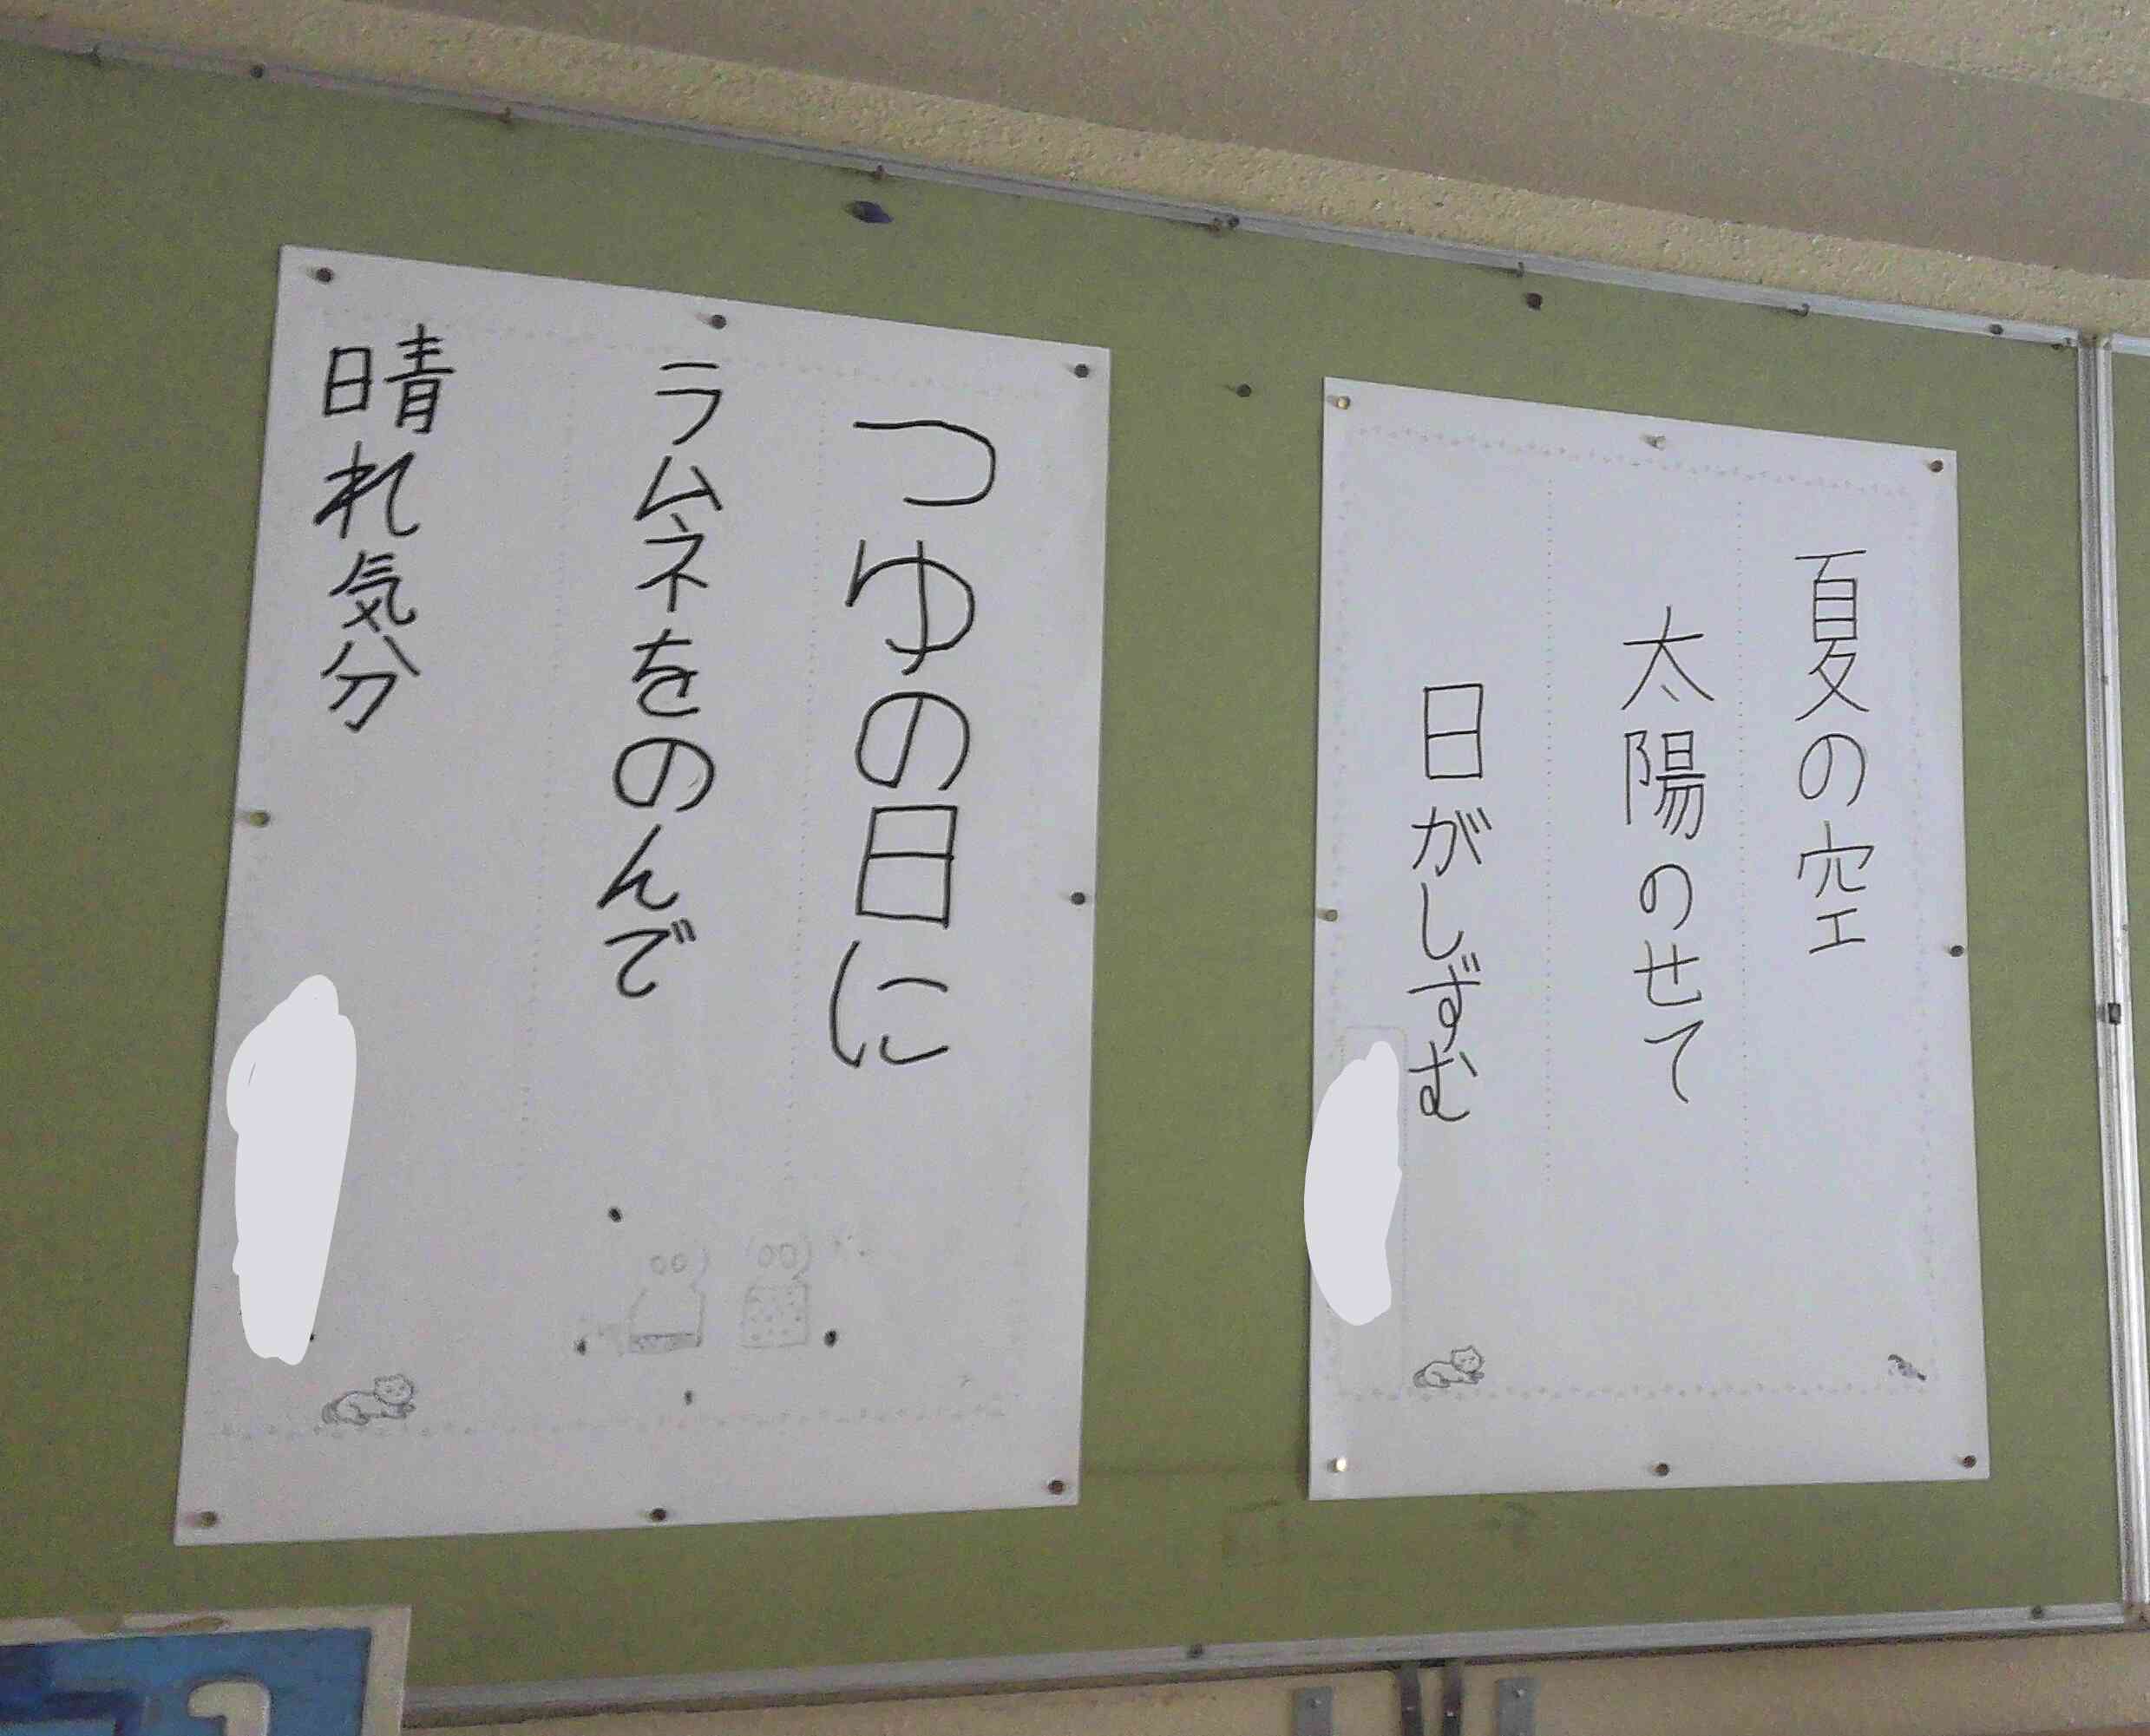 夏の空
太陽のせて
日がしずむ
つゆの日に
ラムネをのんで
晴れ気分
1